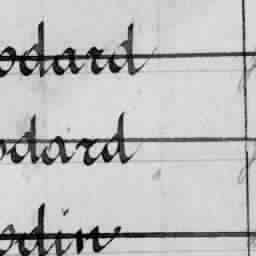 odard
odard
odin